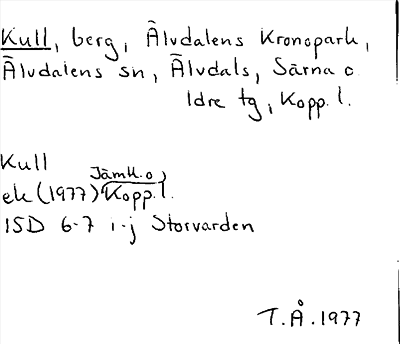 Kull, berg, Älvdalens Kronopark,
Älvdalens sn, Älvdals, Särna o
Idre tg, Kopp. l.
Kull
Jämtl. o
ek (1977) Kopp. l.
15D 6-7 i-j Storvarden
T.Å. 1977